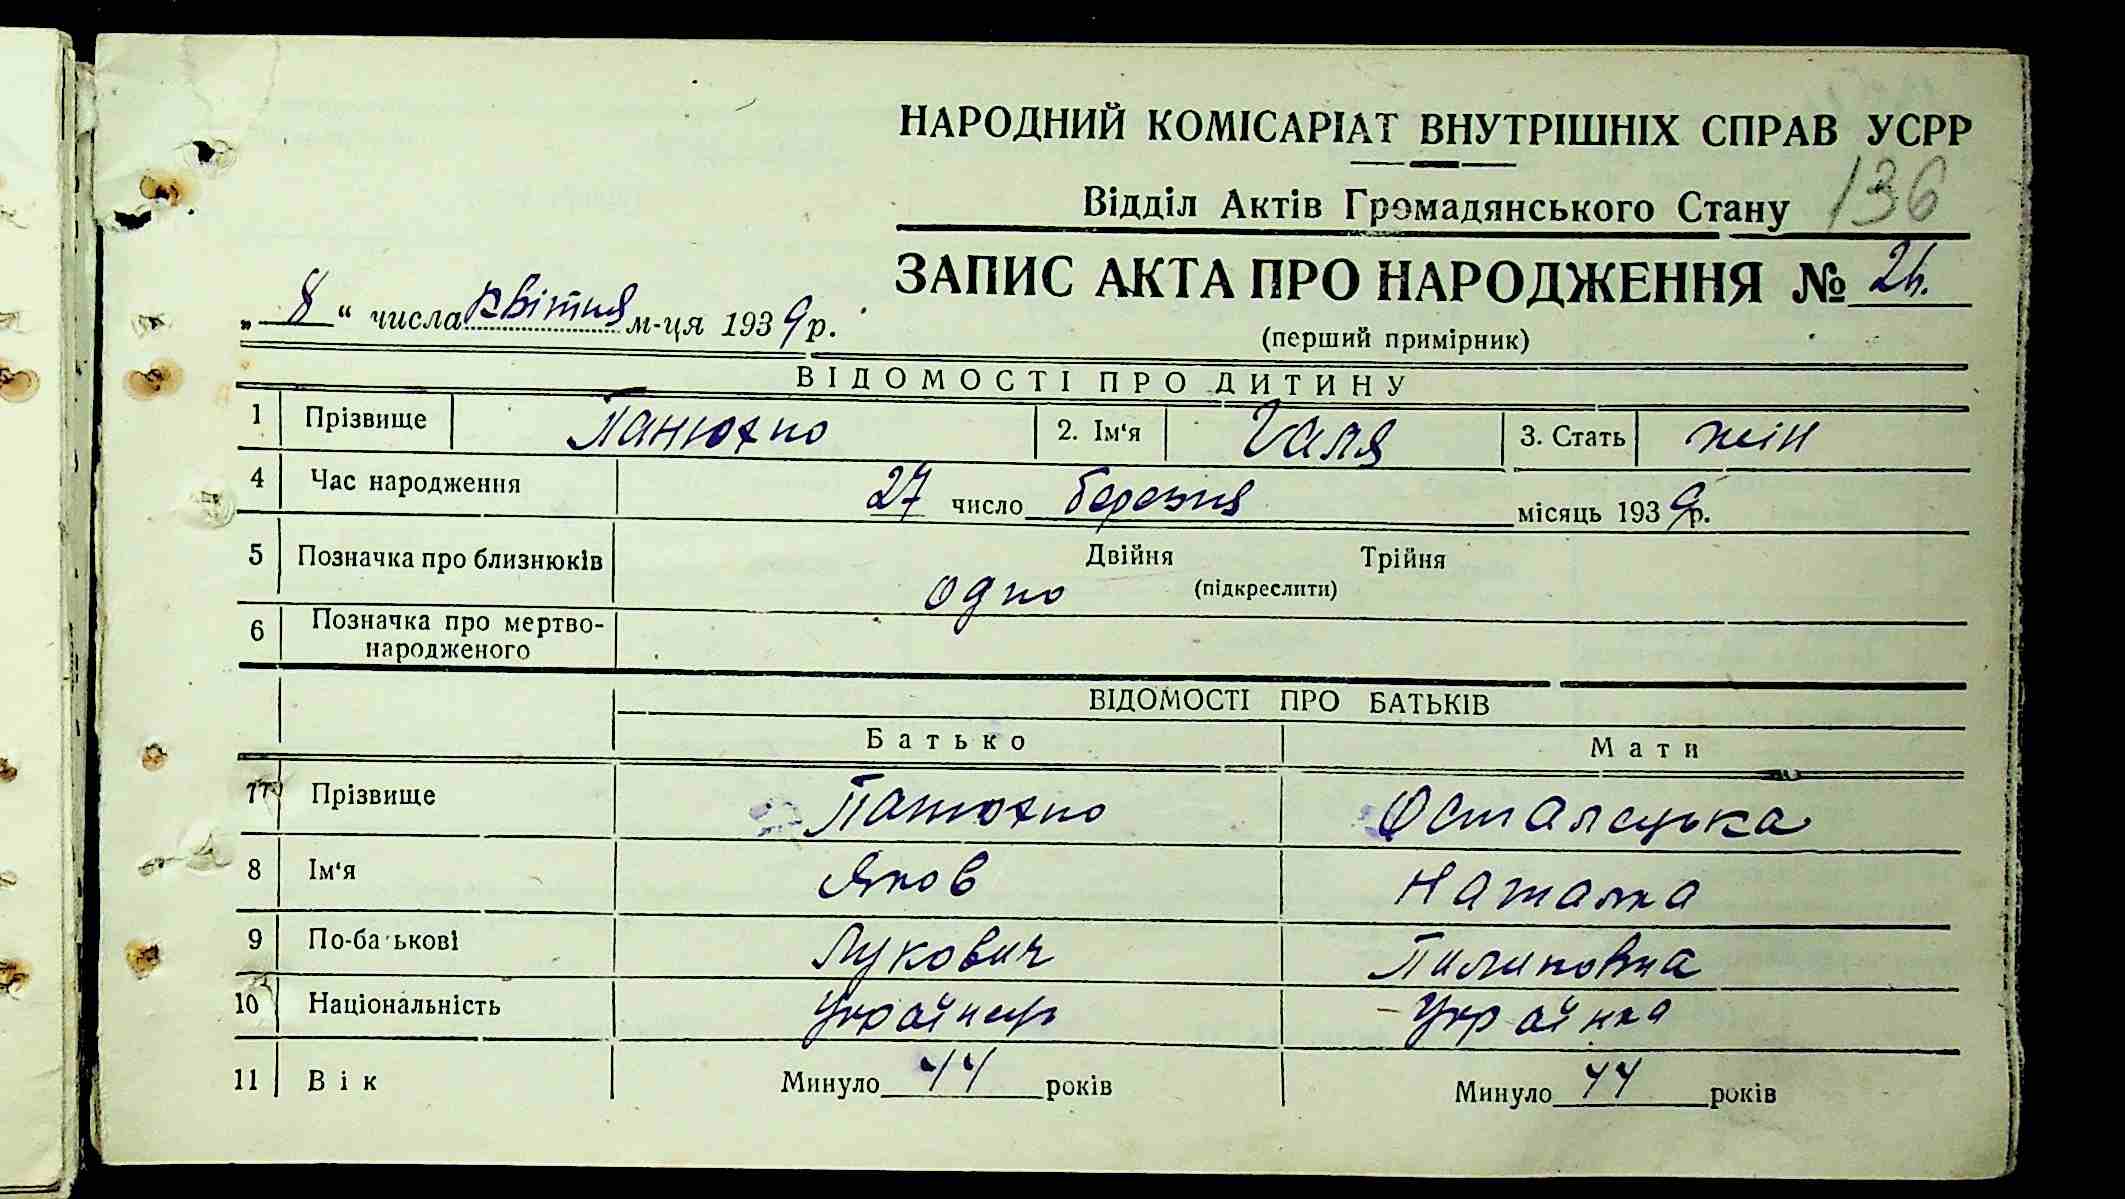 НАРОДНИЙ КОМІСАРІАТ ВНУТРІШНІХ СПРАВ УСРР
136
Відділ Актів Громадянського Стану
ЗАПИС АКТА ПРО НАРОДЖЕННЯ № 24.
„ 8 “ числа квітня м-ця 1939 р.
(перший примірник)
ВІДОМОСТІ ПРО ДИТИНУ
1 Прізвище Панюхно 2. Ім‘я Галя 3. Стать жін
4 Час народження 27 число березня місяць 1939 р.
5 Позначка про близнюків Двійня Трійня
одно (підкреслити)
6 Позначка про мертво-
народженого
ВІДОМОСТІ ПРО БАТЬКІВ
Батько Мати
7 Прізвище Панюхно Осталецька
8 Ім‘я Яков Наталка
9 По-батькові Лукович Пилиповна
10 Національність Українець Українка
11 Вік Минуло 44 років Минуло 44 років